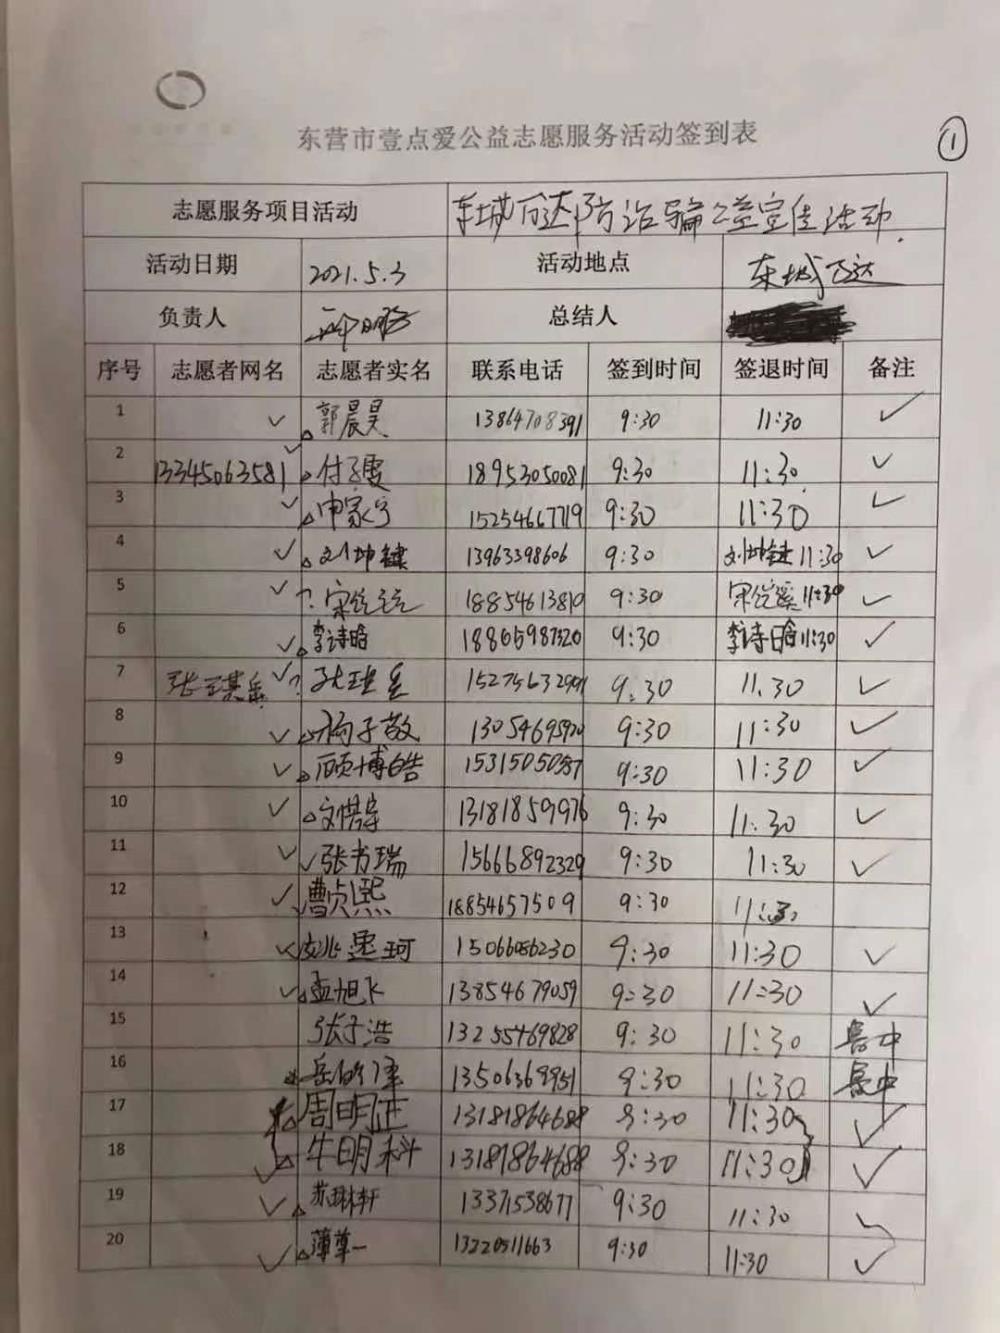 东营市壹点爱公益志愿服务活动签到表
①
志愿服务项目活动 东城万达防诈骗公益宣传活动.
活动日期 2021.5.3 活动地点 东城万达
负责人 总结人
序号 志愿者网名 志愿者实名 联系电话 签到时间 签退时间 备注
1 ✓ 郭晨昊 13864708391 9:30 11:30 ✓
2 13345063581 ✓ 18953050081 9:30 11:30 ✓
3 ✓ 申家宁 15254667719 9:30 11:30 ✓
4 ✓ 刘坤键 13963398606 9:30 刘坤键 11:30 ✓
5 ✓ ? 18854613810 9:30 11:30 ✓
6 ✓ 李诗晗 18865987320 9:30 李诗晗 11:30 ✓
7 ✓ ? 9:30 11:30 ✓
8 ✓ 杨子敬 9:30 11:30 ✓
9 ✓ 顾博皓 9:30 11:30 ✓
10 ✓ 13181859976 9:30 11:30 ✓
11 ✓ ✓ 张书瑞 15666892329 9:30 11:30 ✓
12 ✓ 曹贞熙 18854657509 9:30 11:30
13 ✓ 15066086230 9:30 11:30 ✓
14 ✓ 孟旭飞 13854679059 9:30 11:30 ✓
15 张子浩 13255469828 9:30 11:30
16 9:30 11:30
17 周明正 13181864688 9:30 11:30 ✓
18 ✓ 牛明科 13181864688 9:30 11:30 ✓
19 ✓ 苏琳轩 13371538677 9:30 11:30 ✓
20 ✓ 13220511663 9:30 11:30 ✓